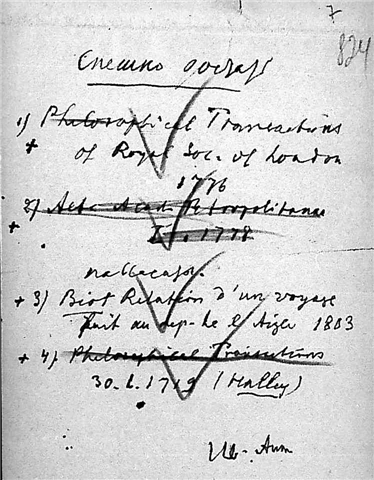 7
824
Спешно достать
1) Philosophical Transactions
+ of Royal Soc. of London
1776
2) Acta Acad. Petropolitanae
+ II. 1778
+ 3) Biot Relation d'un voyage
fait au dep. de l'Aigle 1803
+ 4) Philosophical Transactions
30. 1719 (Halley)